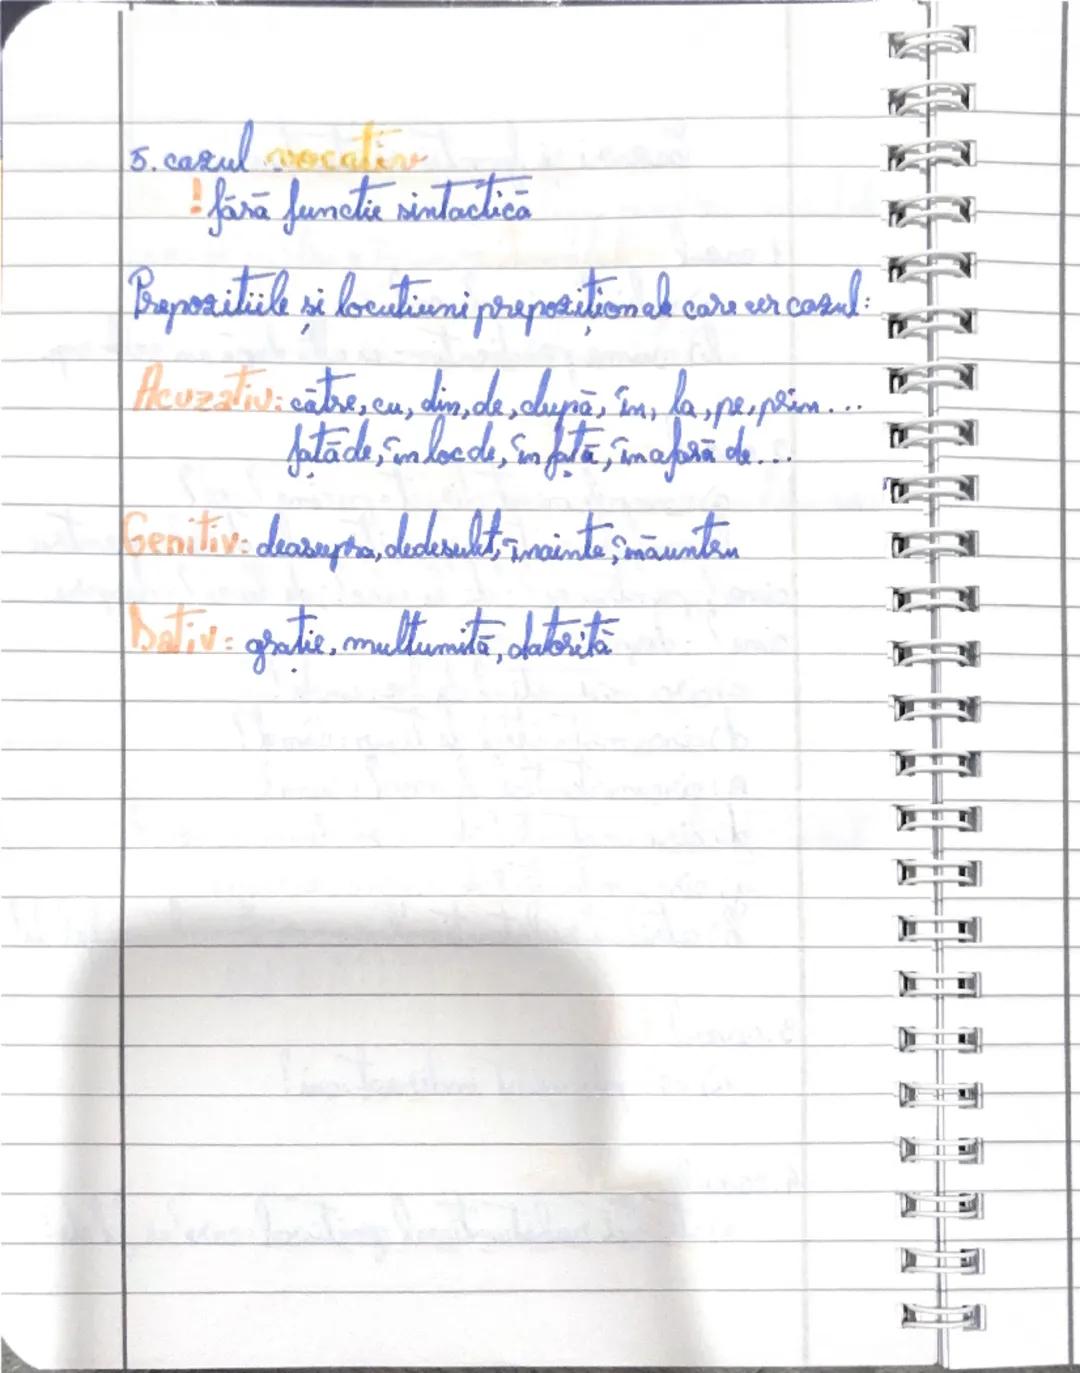 5. cazul vocativ
! fără functie sintactică
Prepozitiile și locutiuni prepoziționale care cer cazul:
Acuzativ: către, cu, din, de, după, în, la, pe, prin...
fațăde, în loc de, în față, în afară de...
Genitiv: deasupra, dedesubt, înainte, înăuntru
Dativ: grație, multumită, datorită